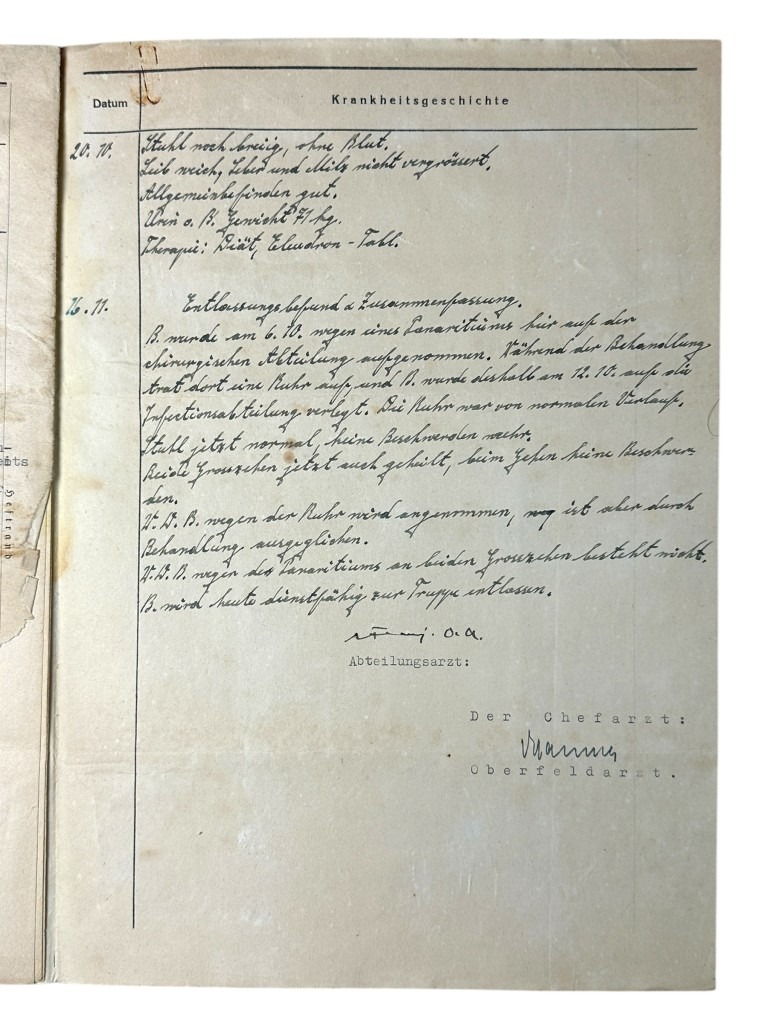 Datum
Krankheitsgeschichte
20. 10.
Stuhl noch breiig, ohne Blut.
Leib weich, Leber und Milz nicht vergrössert.
Allgemeinbefinden gut.
Urin o. B. Gewicht 71 kg.
Therapie: Diät, Eleudron - Tabl.
16. 11.
Entlassungsbefund u Zusammenfassung.
B. wurde am 6. 10. wegen eines Panaritiums hier auf der
chirurgischen Abteilung aufgenommen. Während der Behandlung
trat dort eine Ruhr auf, und B. wurde deshalb am 12. 10. auf die
Infectionsabteilung verlegt. Die Ruhr war von normalen Verlauf.
Stuhl jetzt normal, keine Beschwerden mehr.
Beide Grosszehen jetzt auch geheilt, beim Gehen keine Beschwer-
den.
W. D. B. wegen der Ruhr wird angenommen, ist aber durch
Behandlung ausgeglichen.
W. D. B. wegen des Panaritiums an beiden Grosszehen besteht nicht.
B. wird heute dienstfähig zur Truppe entlassen.
Abteilungsarzt:
Der Chefarzt:
Oberfeldarzt.
Heftrand